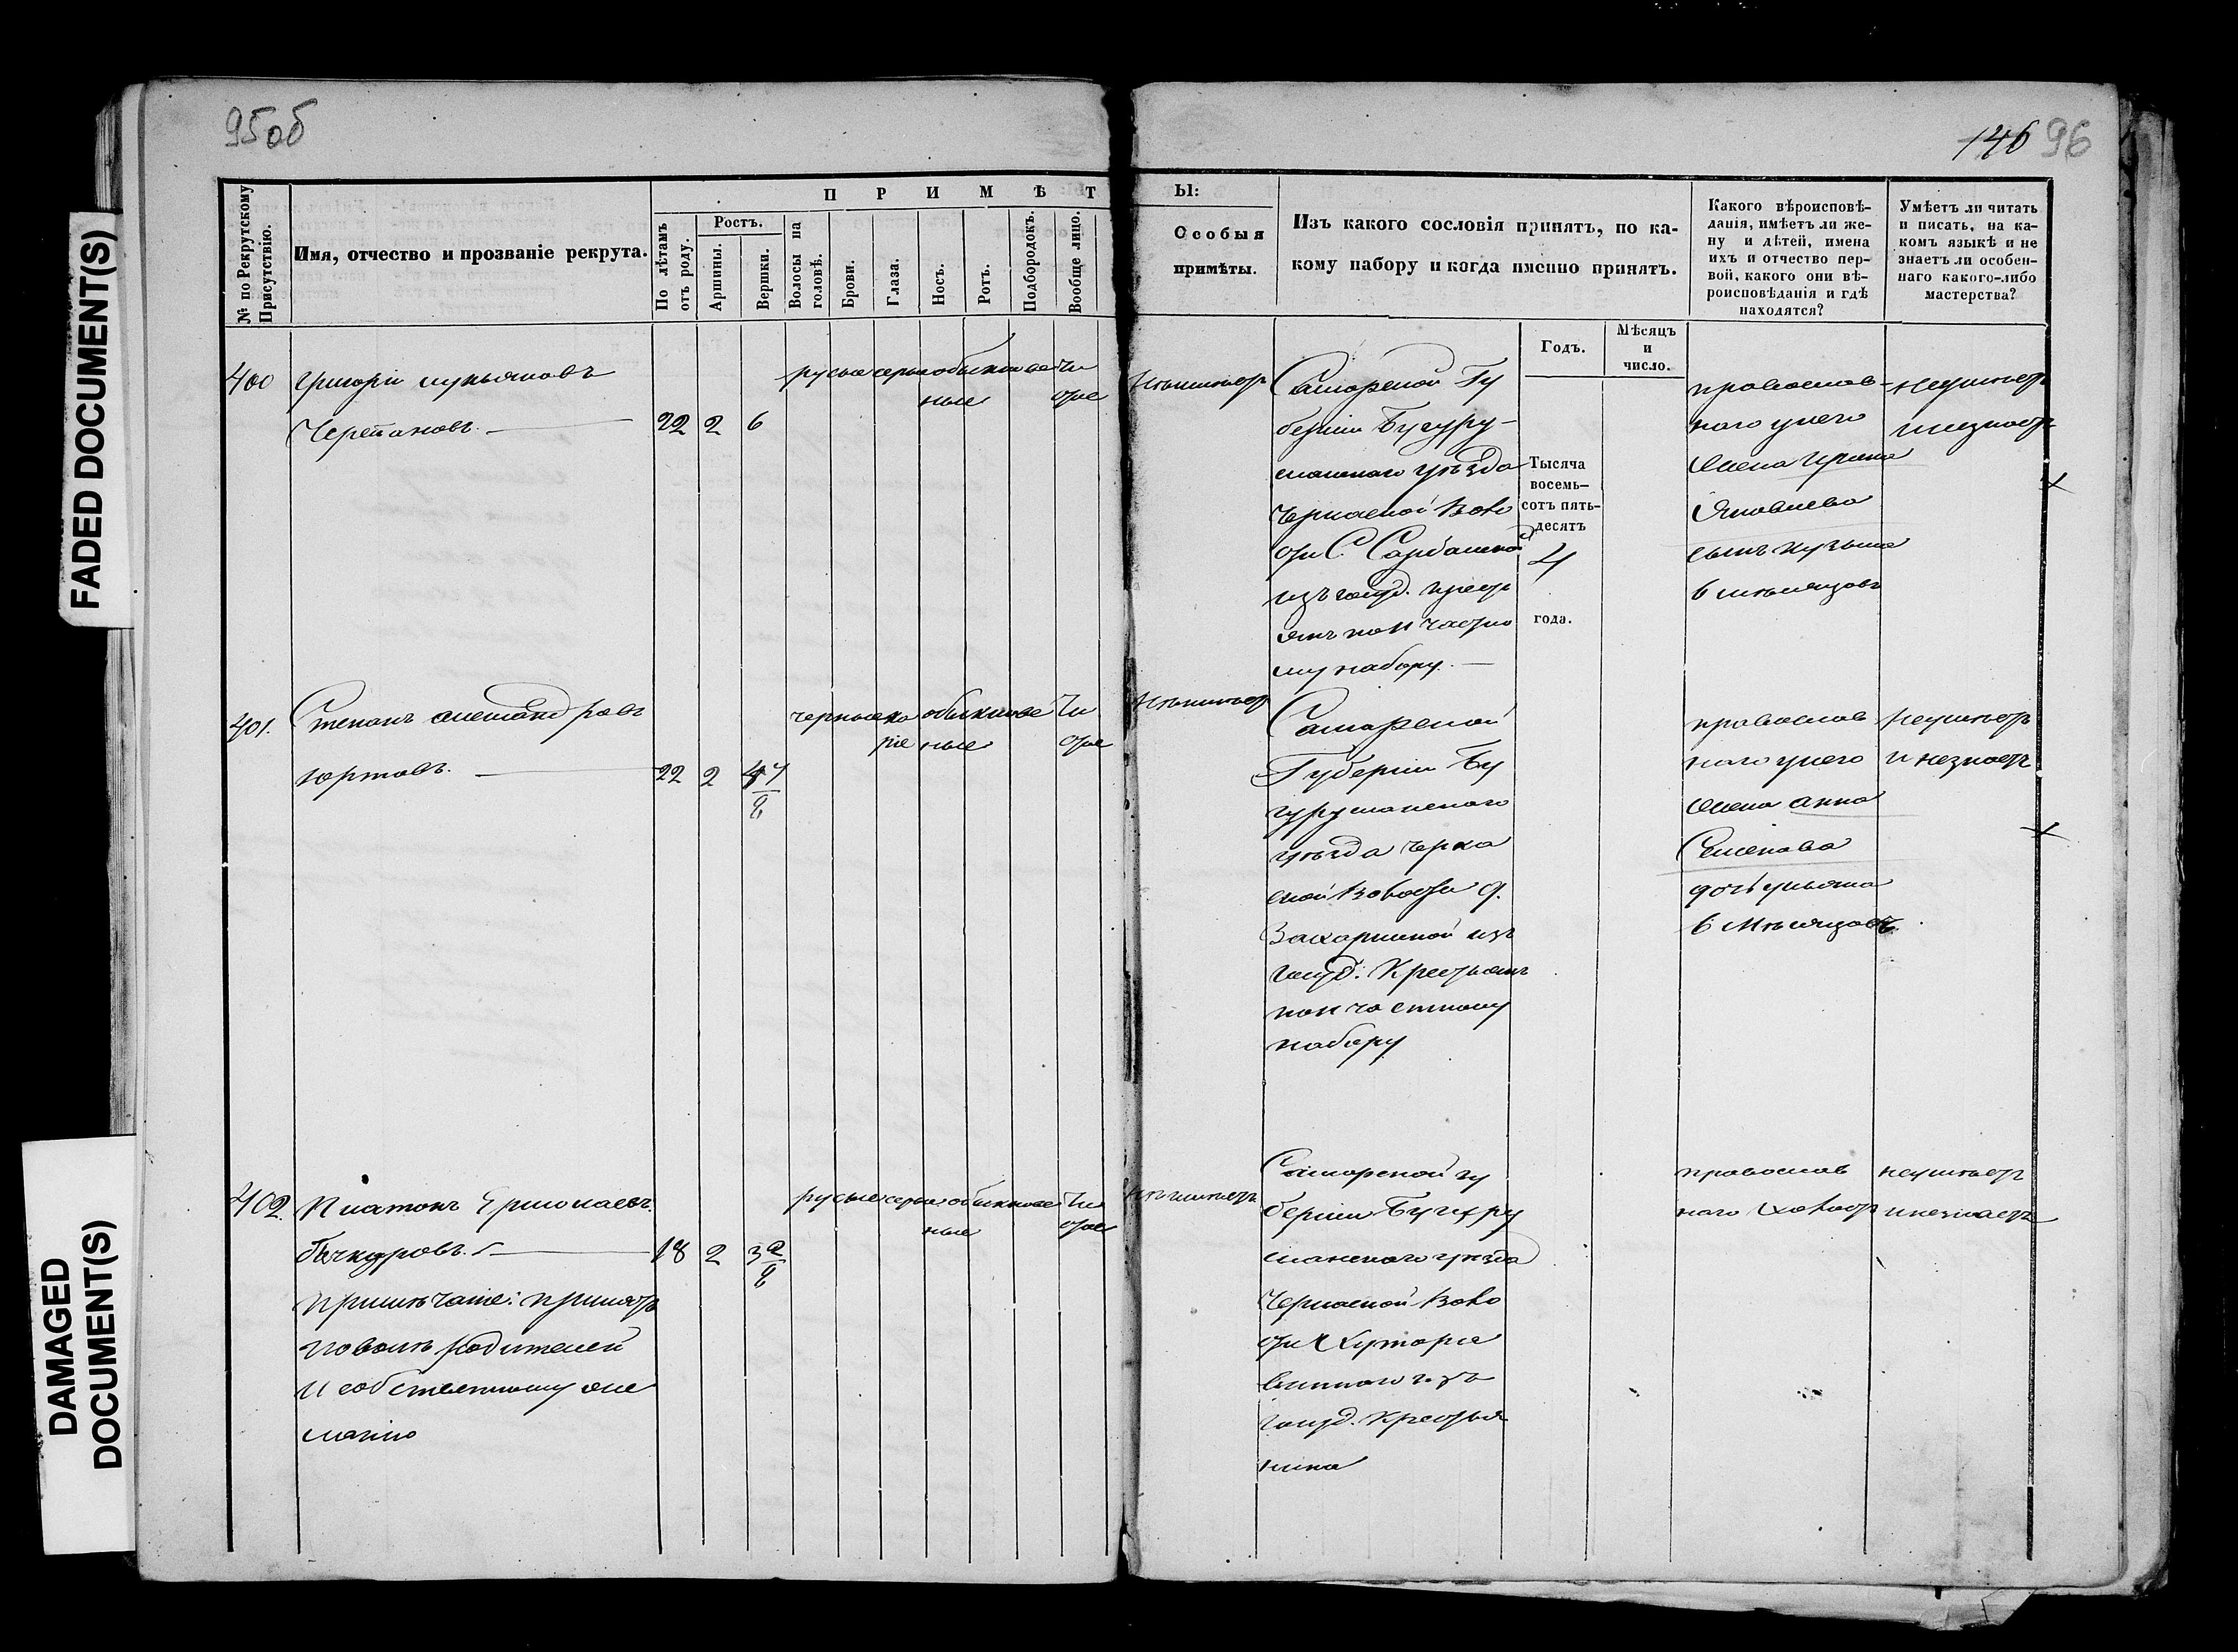 95об
146 96
FADED DOCUMENT(S)
DAMAGED
DOCUMENT(S)
П Р И М Ѣ Т
Ы:
№ по Рекрутскому
Присутствію.
Имя, отчество и прозваніе рекрута.
По лѣтамъ
отъ роду.
Ростъ.
Аршины.
Вершки.
Волосы на
головѣ.
Брови.
Глаза.
Носъ.
Ротъ.
Подбородокъ.
Вообще лицо.
Особыя
примѣты.
Изъ какого сословія принятъ, по ка-
кому набору и когда именно принятъ.
Какого вѣроисповѣ-
данія, имѣетъ ли же-
ну и дѣтей, имена
ихъ и отчество пер-
вой, какого они вѣ-
роисповѣданія и гдѣ
находятся?
Умѣетъ ли читать
и писать, на ка-
комъ языкѣ и не
знаетъ ли особен-
наго какого-либо
мастерства?
Годъ.
Мѣсяцъ
и
число.
400
Григори лукьяновъ
Черепановъ.
22 2 6
русые серые обыкнове
ные
чи
стое
Неимѣетъ
Самарской Гу
берніи Бугуру-
сланскаго уѣзда
Черкаской Воло
сти С. Сарбайской
изъ госуд. крест
янъ по 11 частно
му набору.
Тысяча
восемь-
сотъ пять-
десятъ
4
года.
православ-
наго унего
жена ирина
Яковлева
сынъ кузьма
6 мѣсяцовъ
неумѣетъ
инезнаетъ
401.
Степанъ александровъ
юртовъ.
22 2 4 7/8
черные ка
ріе
обыкнове
ные
чи
стое
Неимѣетъ
Самарской
Губерніи Бу
гурусланскаго
уѣзда Черка
ской Волости д.
Захаркиной изъ
госуд. Крестьянъ
по 11 частному
набору
православ
наго унего
жена анна
Семенова
дочь ульяна
6 Мѣсяцовъ.
Неумѣетъ
и незнаетъ
402.
Платонъ Ермолаевъ
бычкуровъ.
18 2 3 2/8
русые серые обыкновен
ные
чи
стое
неимѣетъ
Примѣчаніе: принятъ
поволѣ родителей
и собственному же
ланію
Самарской гу
берніи Бугуру
сланскаго уѣзда
Черкаской Воло
сти Хутора
изъ
госуд. крестья
нина
православ
наго холостъ
неумѣетъ
инезнаетъ